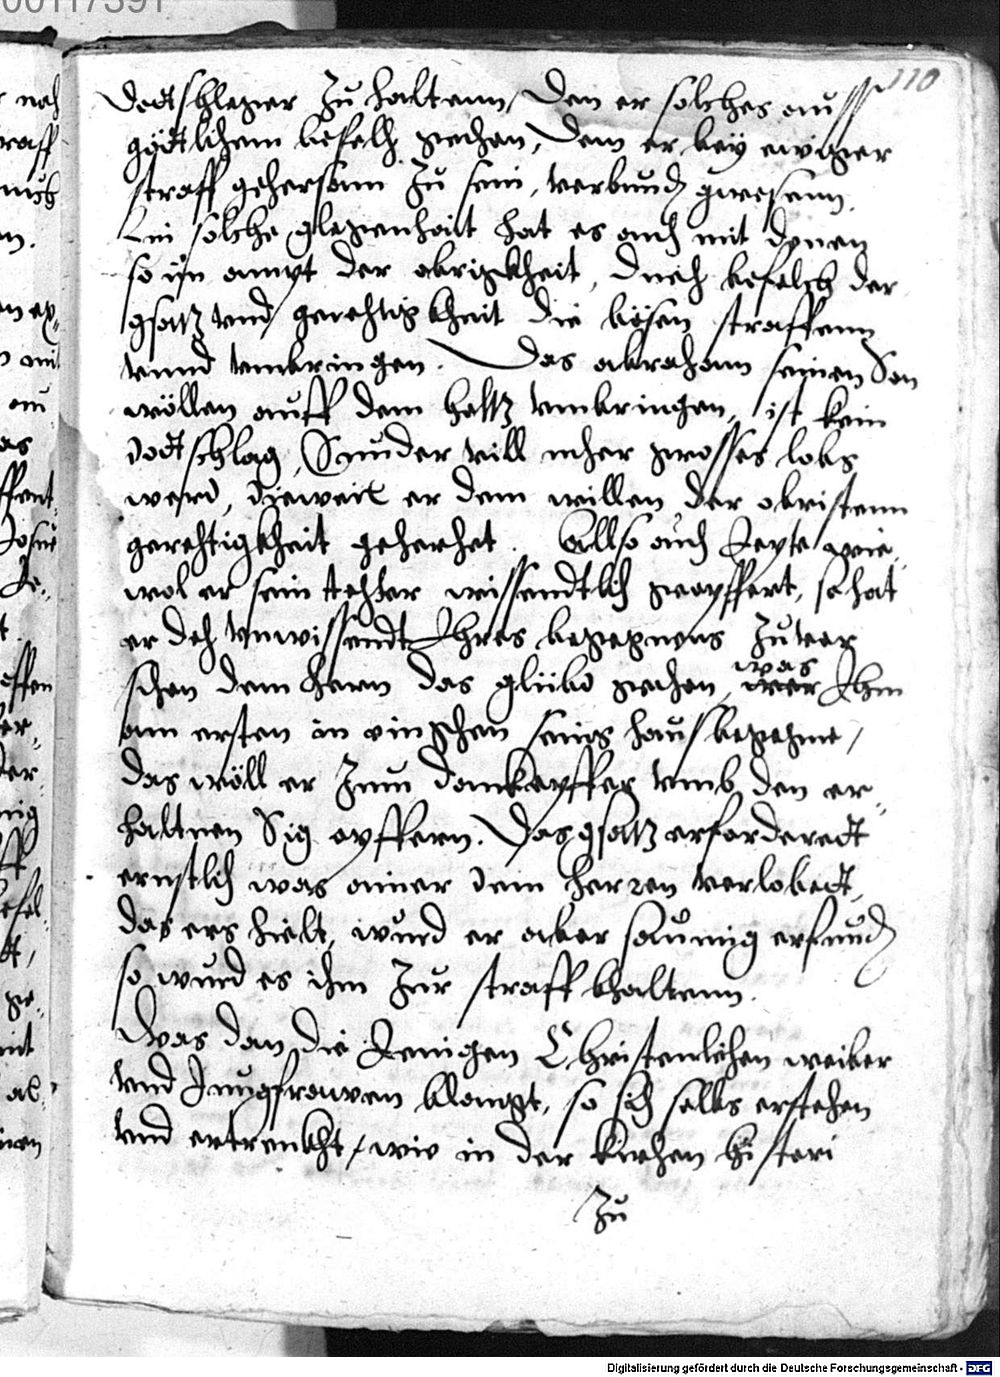 110
Dodtschleger zu haltenn, Den er solches auß
göttlichem befelh gethan, dem er bey ewiger
straff gehorsam zu sein, verbundn gwesenn.
Ein solche glegenhait hat es auch mit denen
so im ampt der obrigkheit, durch befelch der
gsatz vnd gerechtigkheit die bösen straffenn
vnnd vmbringen. Das abraham seinen Son
wöllen auff dem holtz vmbringen, ist kein
dodtschlag, Sunder vill meher grosses lobs
werd, dieweil er dem willen der obristenn
gerechtigkheit gehorchet. Allso auch Jepte wie
wol er sein tochter wissendtlich geopffert, so hat
er doch vnwissendt Ihres begegnens zuuor
schon dem hern das glübd gethan, was Ihm
am ersten im eingehen seins haus begegne,
das wöll er zum danckopffer vmb den er-
haltnen Sig opffern. Das gsatz erforderedt
ernstlich was ainer dem herren verlobedt,
das ers hielt, wurd er aber säumig erfundn
so wurd es ihm zur straff bhaltenn.
Was dan die Jenigen Christenlichen weiber
vnd Jungfrawen blangt, so sich selbs erstochen
vnd ertrenckht, wie in der kirchen histori
zu
Digitalisierung gefördert durch die Deutsche Forschungsgemeinschaft - DFG